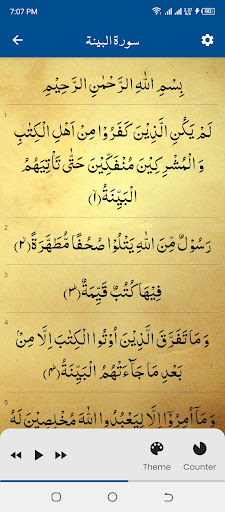 7:07 PM
سورة البينة
بِسْمِ اللهِ الرَّحْمٰنِ الرَّحِيْمِ
لَمْ يَكُنِ الَّذِيْنَ كَفَرُوْا مِنْ اَهْلِ الْكِتٰبِ
وَالْمُشْرِكِيْنَ مُنْفَكِّيْنَ حَتّٰى تَاْتِيَهُمُ
الْبَيِّنَةُ ﴿۱﴾
2
رَسُوْلٌ مِّنَ اللهِ يَتْلُوْا صُحُفًا مُّطَهَّرَةً ﴿۲﴾
3
فِيْهَا كُتُبٌ قَيِّمَةٌ ﴿۳﴾
4
وَمَا تَفَرَّقَ الَّذِيْنَ اُوْتُوا الْكِتٰبَ اِلَّا مِنْۢ
بَعْدِ مَا جَآءَتْهُمُ الْبَيِّنَةُ ﴿۴﴾
5
وَمَاۤ اُمِرُوْۤا اِلَّا لِيَعْبُدُوا اللهَ مُخْلِصِيْنَ لَهُ
Theme Counter